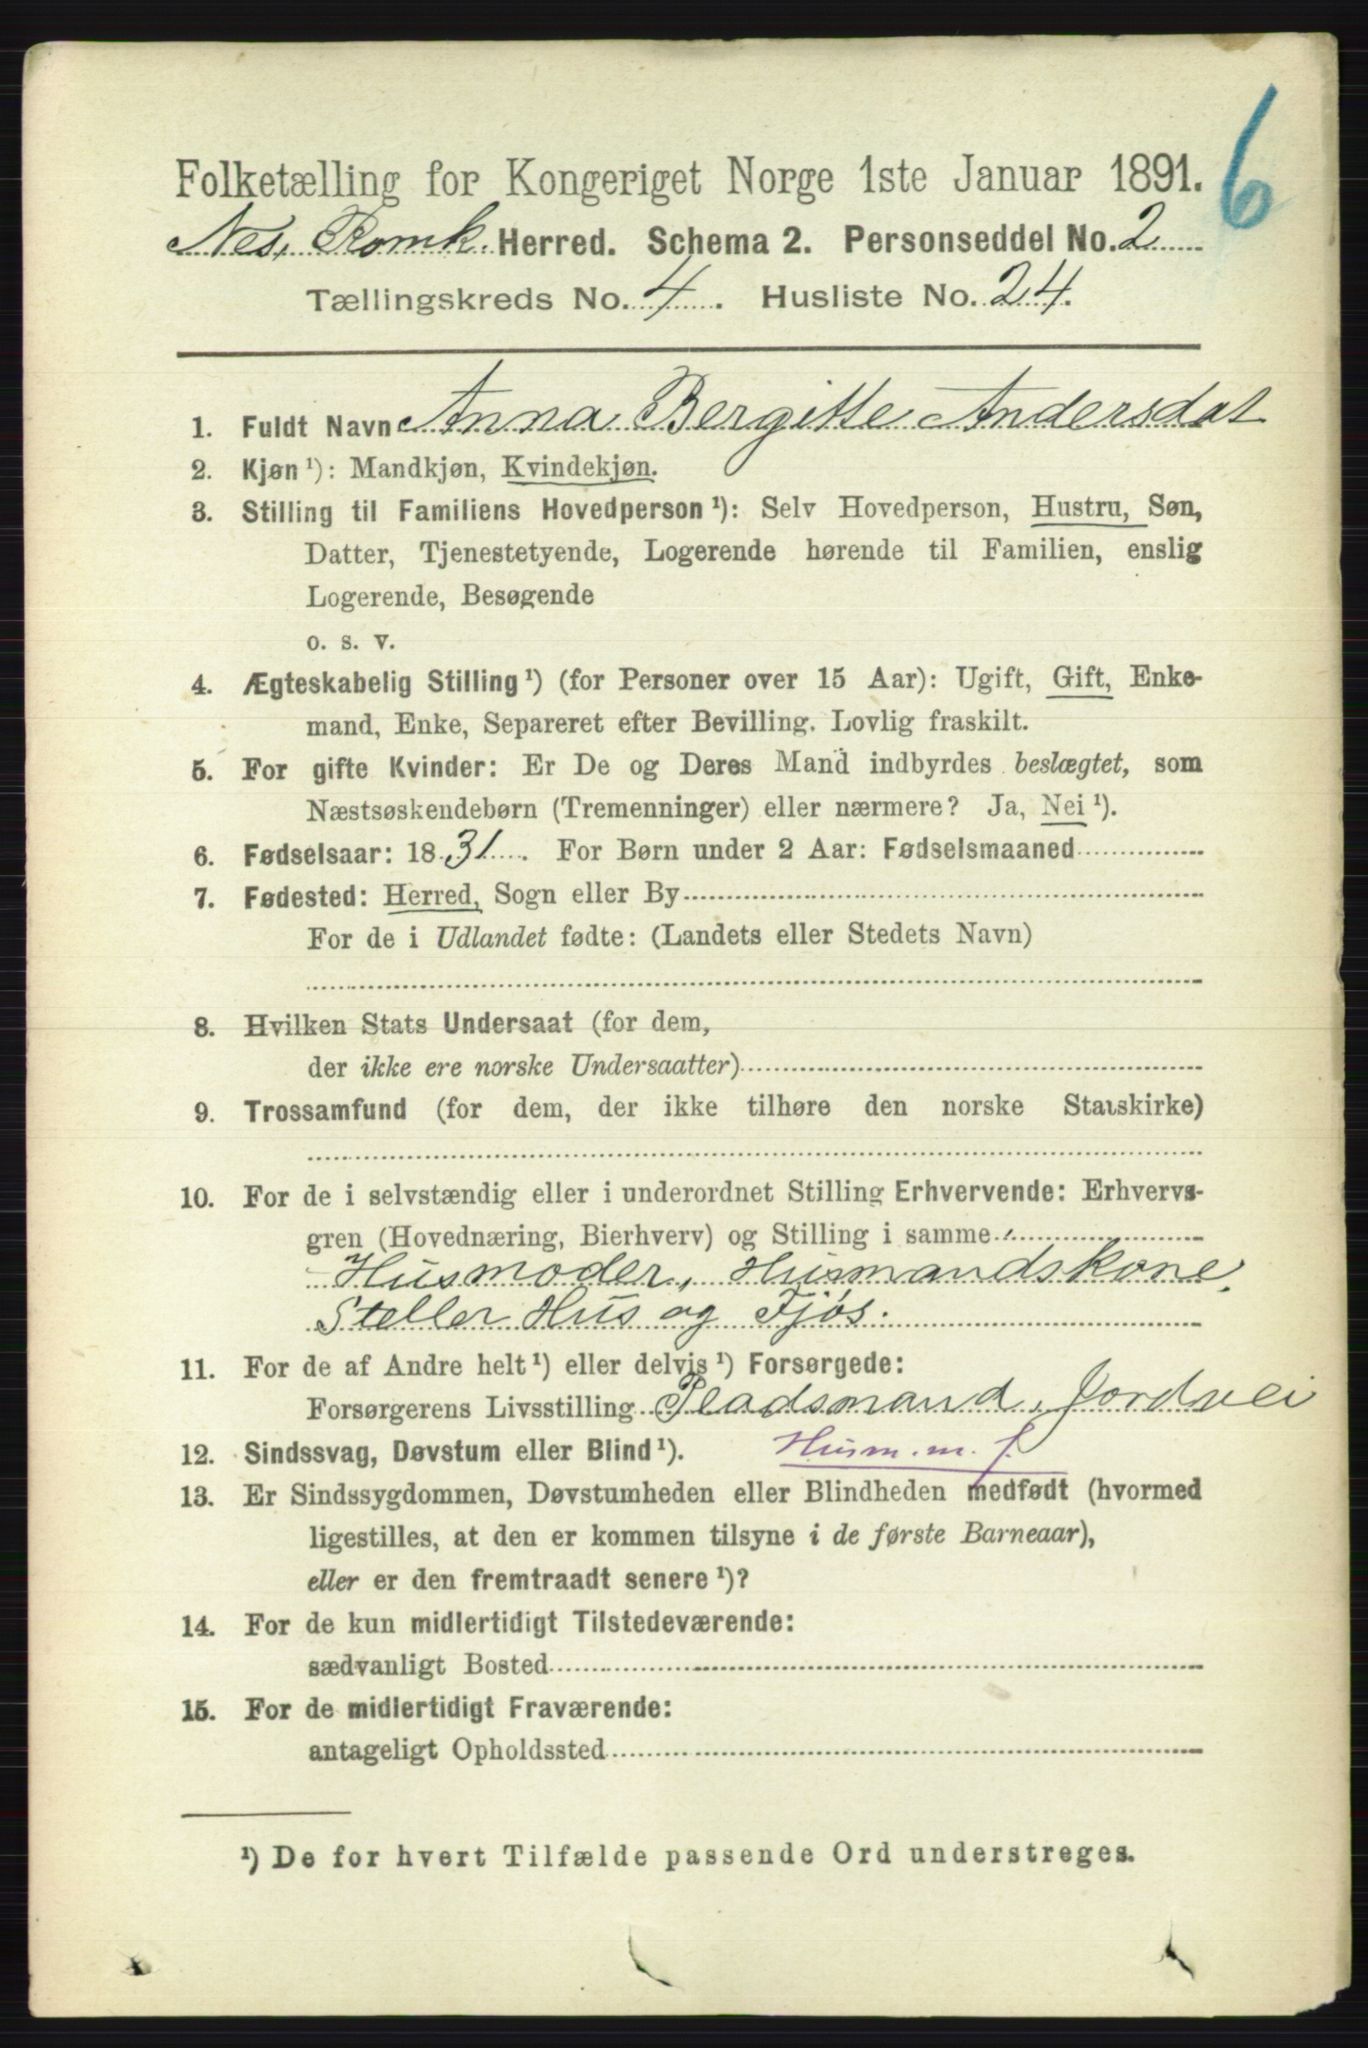 6
Folketælling for Kongeriget Norge 1ste Januar 1891.
Nes, Romk. Herred. Schema 2. Personseddel No. 2
Tællingskreds No. 4. Husliste No. 24.
1. Fuldt Navn Anna Bergitte Andersdat
2. Kjøn ¹): Mandkjøn, Kvindekjøn.
3. Stilling til Familiens Hovedperson ¹): Selv Hovedperson, Hustru, Søn,
Datter, Tjenestetyende, Logerende hørende til Familien, enslig
Logerende, Besøgende
o. s. v.
4. Ægteskabelig Stilling ¹) (for Personer over 15 Aar): Ugift, Gift, Enke-
mand, Enke, Separeret efter Bevilling. Lovlig fraskilt.
5. For gifte Kvinder: Er De og Deres Mand indbyrdes beslægtet, som
Næstsøskendebørn (Tremenninger) eller nærmere? Ja, Nei ¹).
6. Fødselsaar: 1831. For Børn under 2 Aar: Fødselsmaaned
7. Fødested: Herred, Sogn eller By
For de i Udlandet fødte: (Landets eller Stedets Navn)
8. Hvilken Stats Undersaat (for dem,
der ikke ere norske Undersaatter)
9. Trossamfund (for dem, der ikke tilhøre den norske Statskirke)
10. For de i selvstændig eller i underordnet Stilling Erhvervende: Erhvervs-
gren (Hovednæring, Bierhverv) og Stilling i samme
Husmoder, Husmandskone,
Steller Hus og Fjøs.
11. For de af Andre helt ¹) eller delvis ¹) Forsørgede:
Forsørgerens Livsstilling Pladsmand, Jordvei
12. Sindssvag, Døvstum eller Blind ¹). Husm. m. J.
13. Er Sindssygdommen, Døvstumheden eller Blindheden medfødt (hvormed
ligestilles, at den er kommen tilsyne i de første Barneaar),
eller er den fremtraadt senere ¹)?
14. For de kun midlertidigt Tilstedeværende:
sædvanligt Bosted
15. For de midlertidigt Fraværende:
antageligt Opholdssted
¹) De for hvert Tilfælde passende Ord understreges.